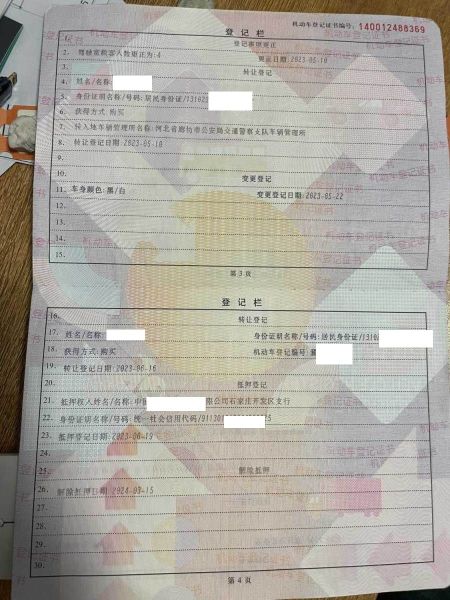 机动车登记证书编号: 140012488369
登记栏
1. 登记事项更正
2. 驾驶室载客人数更正为:4 更正日期:2023-05-10
3. 转让登记
4. 姓名/名称:
5. 身份证明名称/号码:居民身份证/131023
6. 获得方式:购买
7. 转入地车辆管理所名称:河北省廊坊市公安局交通警察支队车辆管理所
8. 转让登记日期:2023-05-10
9.
10. 变更登记
11. 车身颜色:黑/白 变更登记日期:2023-05-22
12.
13.
14.
15.
第3页
登记栏
16. 转让登记
17. 姓名/名称: 身份证明名称/号码:居民身份证/1310
18. 获得方式:购买 机动车登记编号:冀
19. 转让登记日期:2023-06-16
20. 抵押登记
21. 抵押权人姓名/名称:中 限公司石家庄开发区支行
22. 身份证明名称/号码:统一社会信用代码/91130 5
23. 抵押登记日期:2023-06-19
24.
25. 解除抵押
26. 解除抵押日期:2024-03-15
27.
28.
29.
30.
第4页